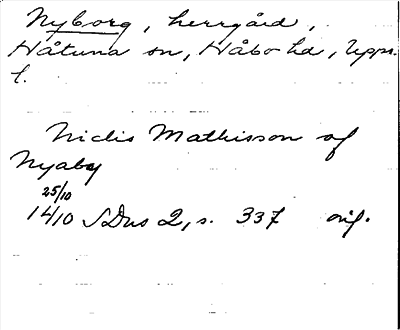 Nyborg, herrgård,
Håtuna sn, Håbo hd, Upps.
l.
Niclis Mathisson af
Nyaby
25/10
14/10 SDns 2, s. 337 orig.